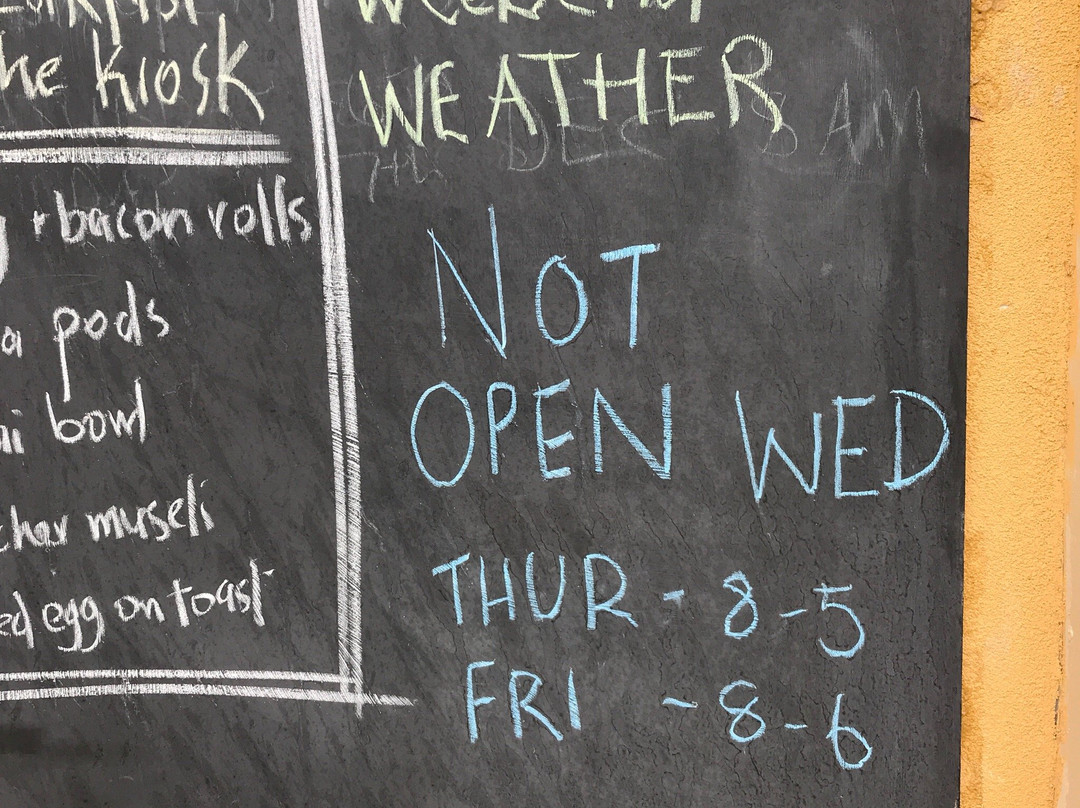 he Kiosk
+bacon rolls
a pods
ai bowl
char museli
ed egg on toast
WEATHER
NOT
OPEN WED
THUR - 8-5
FRI - 8-6